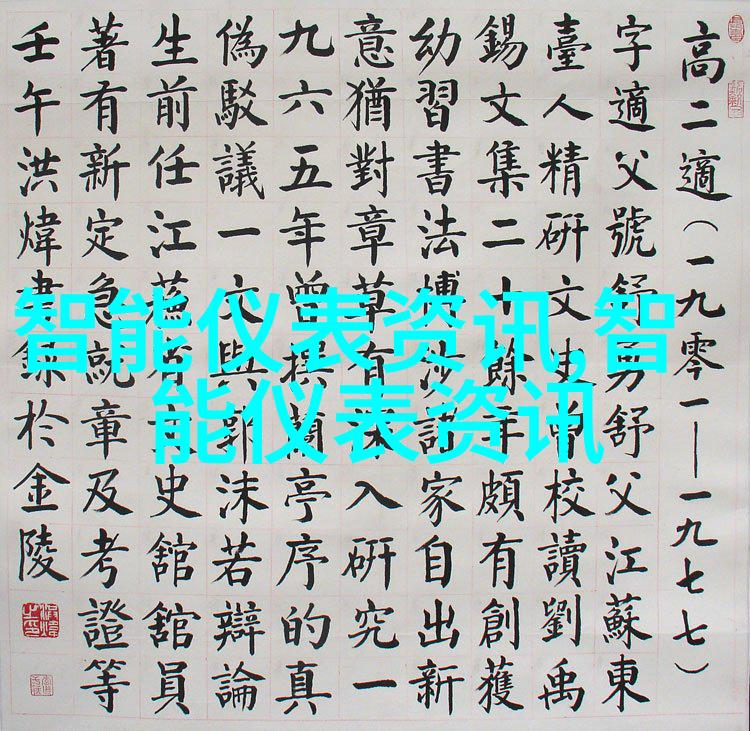 高二適（一九零一—一九七七）
字適父號舒舒父江蘇東
臺人精研文史校讀劉禹
錫文集二十餘年頗有創獲
幼習書法博涉諸家自出新
意猶對章草有深入研究一
九六五年曾撰蘭亭序的真
偽駁議一文與郭沫若辯論
生前任江蘇省文史館館員
著有新定急就章及考證等
壬午洪煒書錄於金陵
智能仪表资讯,智
能仪表资讯